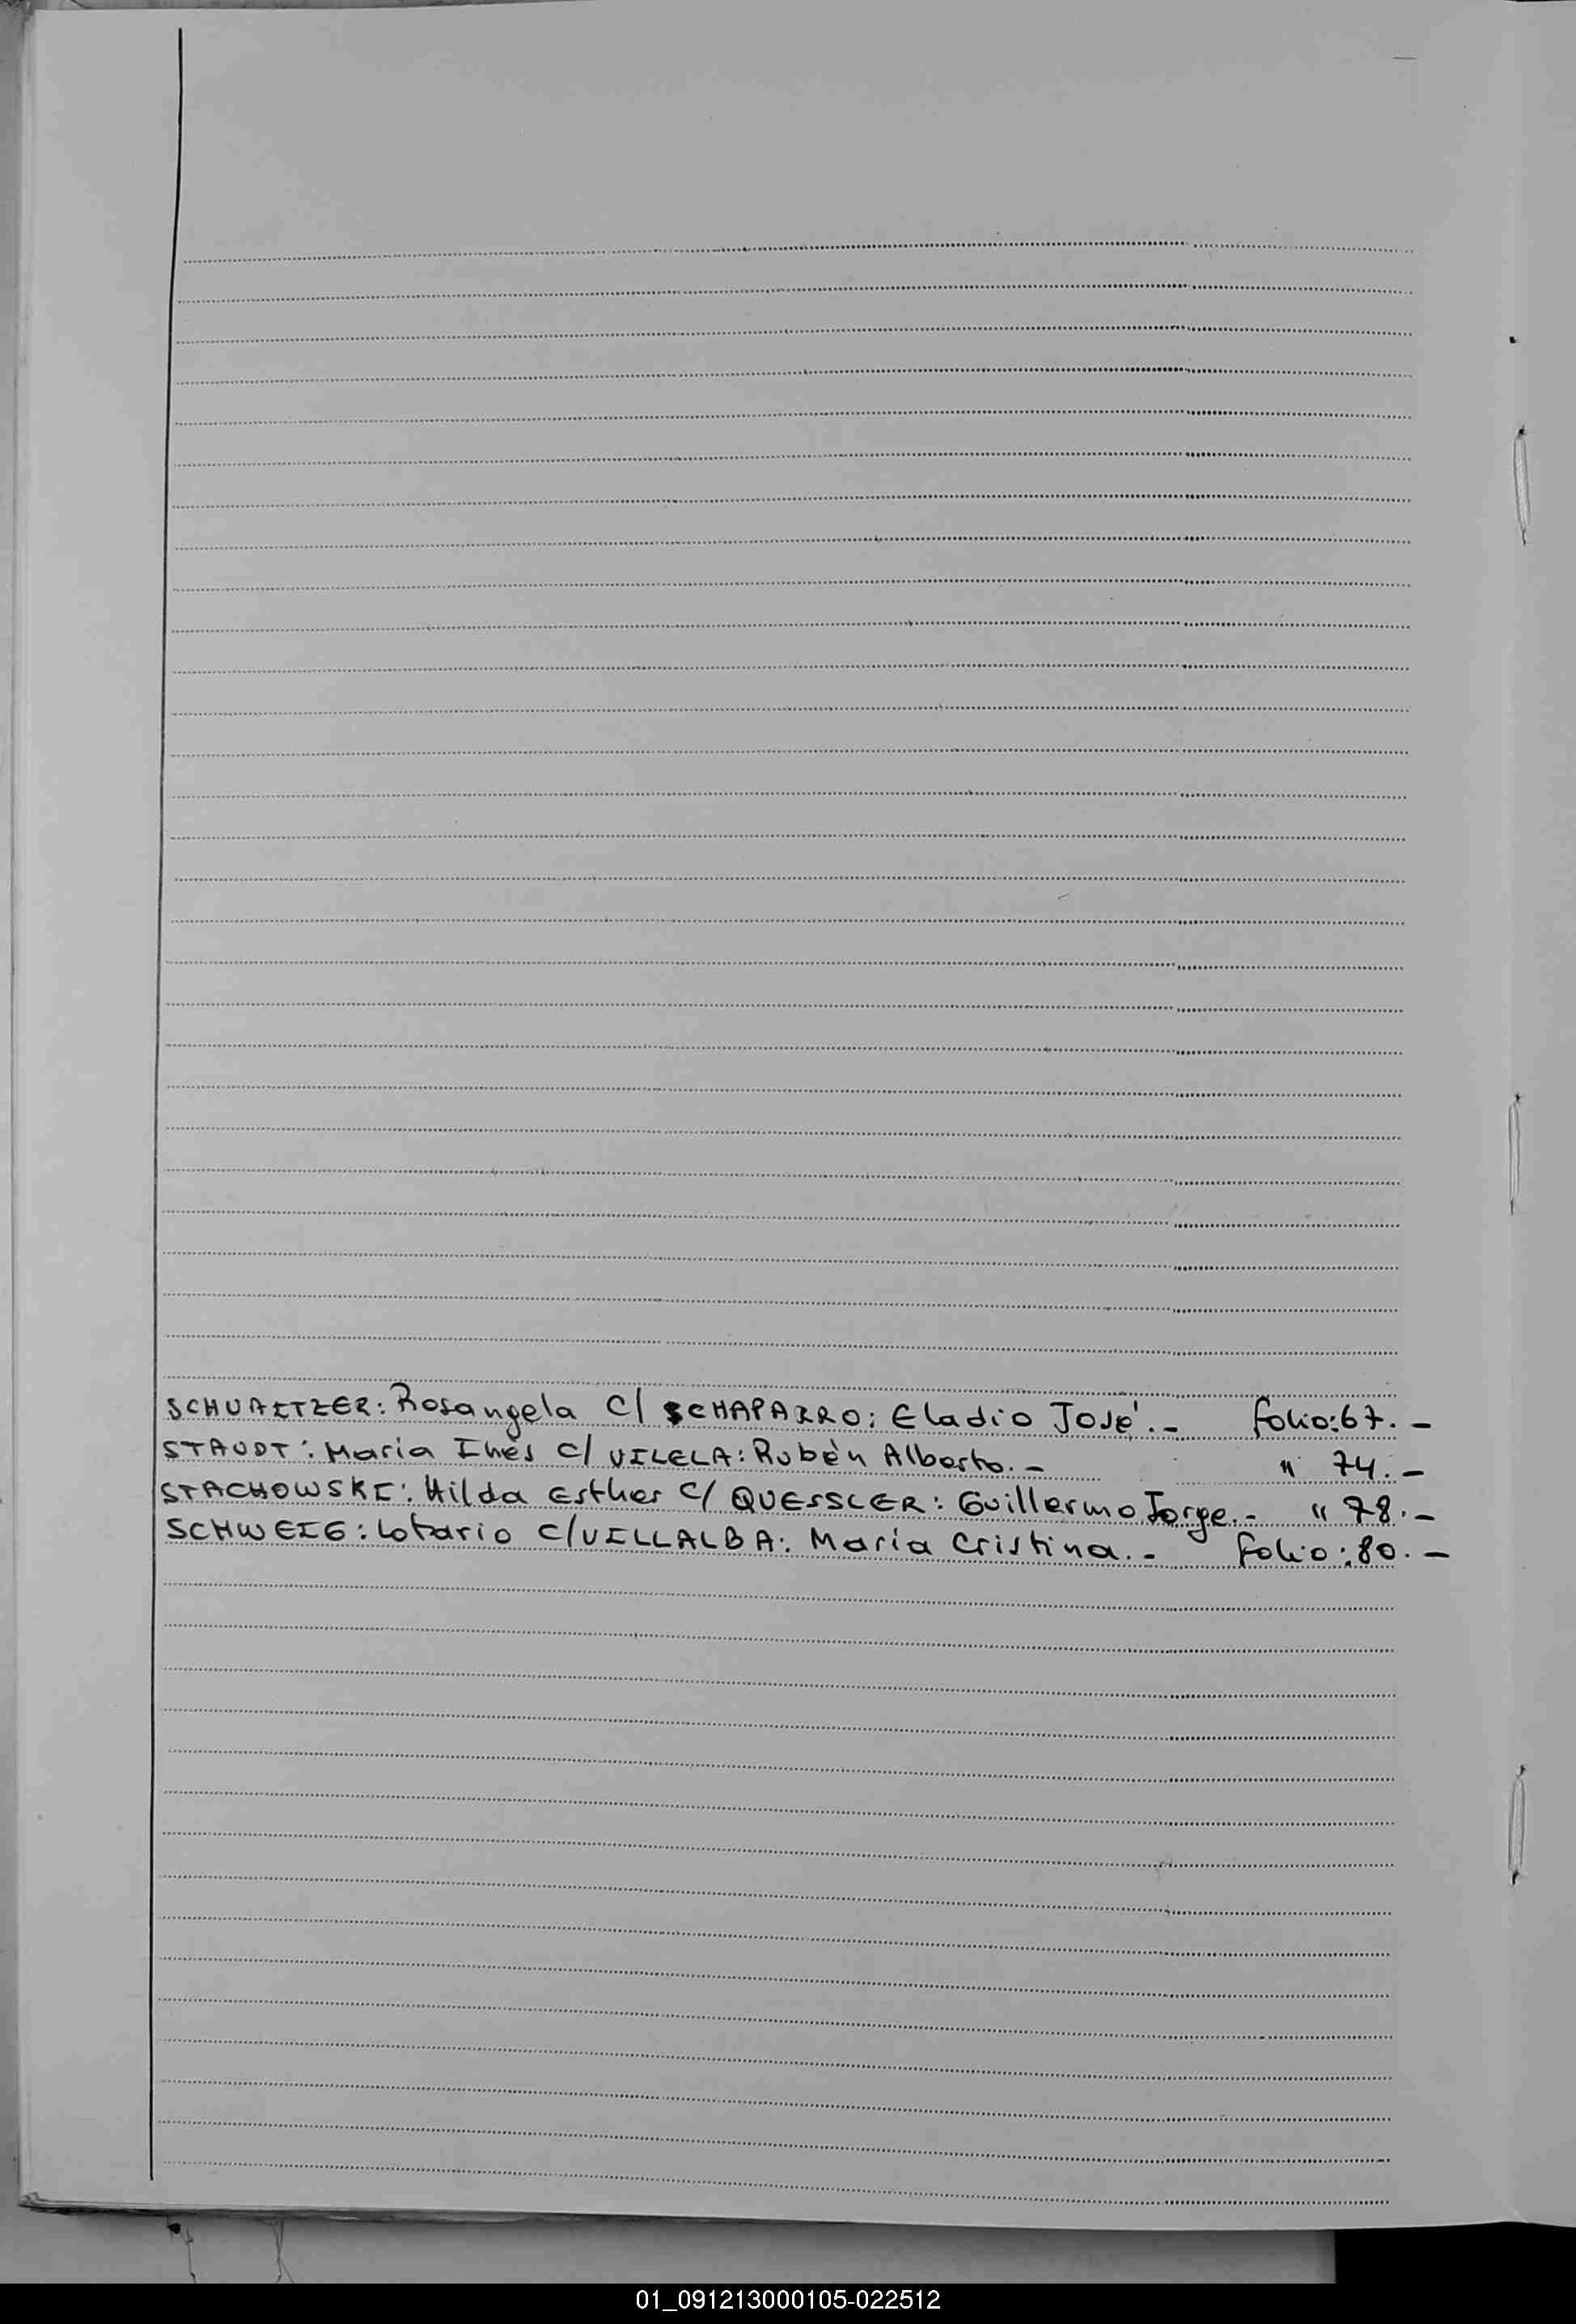 SCHUAITZER: Rosangela C/ SCHAPARRO: Eladio José.- folio:67.-
STAUDT: María Inés C/ VILELA: Rubén Alberto.- " 74.-
STACHOWSKI: Hilda Esther C/ QUESSLER: Guillermo Jorge.- " 78.-
SCHWEIG: Lotario C/ VILLALBA: María Cristina.- folio:80.-
01_091213000105-022512